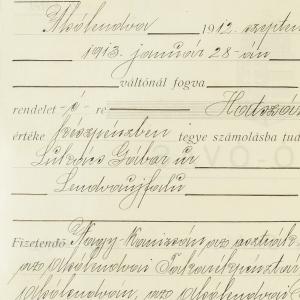 Alsólendva 1912. szeptem
1913. január 28-án
váltónál fogva
rendelet -é- re Hatszáz
értéke készpénzben tegye számolásba tud
Lukács Gábor úr
Lendvaujfalu
Fizetendő Nagy-Kanizsán az osztrák
az Alsólendvai Takarékpénztár
Alsólendván, az Alsólendvai